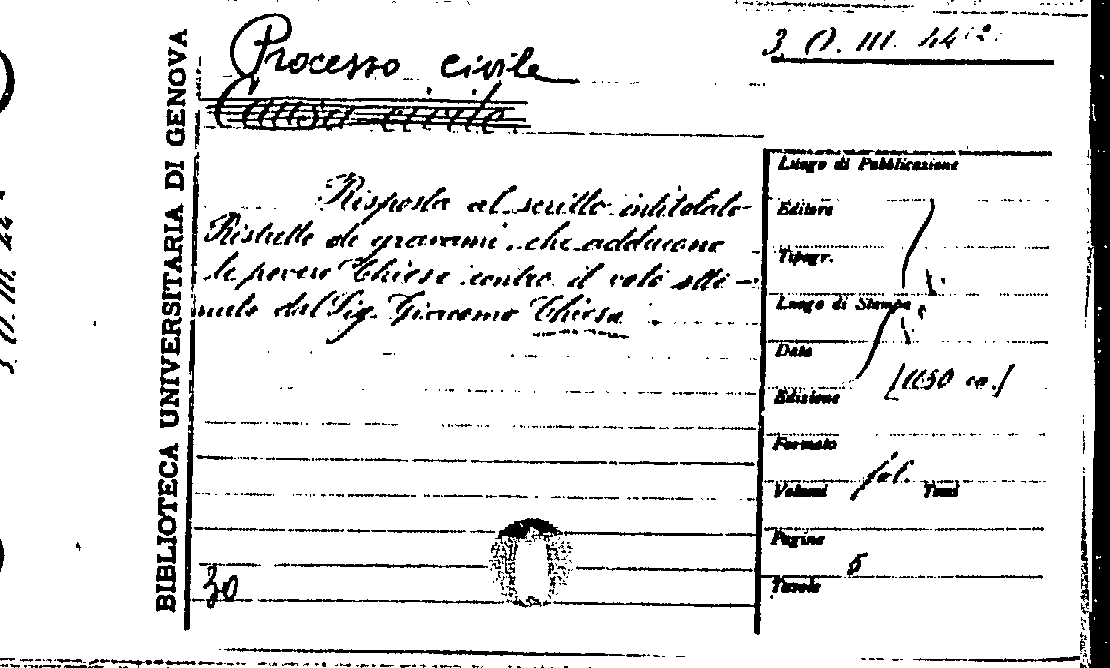 BIBLIOTECA UNIVERSITARIA DI GENOVA
Processo civile
Causa civile.
3. O. III. 44
Risposta al scritto intitolato
Ristretto di gravami, che adducono
le povere Chiese contro il voto otte-
nuto dal Sig. Giacomo Chiesa
30
Luogo di Pubblicazione
Editore
Tipogr.
Luogo di Stampa
Data
Edizione
Formato
fol.
Volumi Tomi
Pagine
6
Tavole
3. O. III. 44